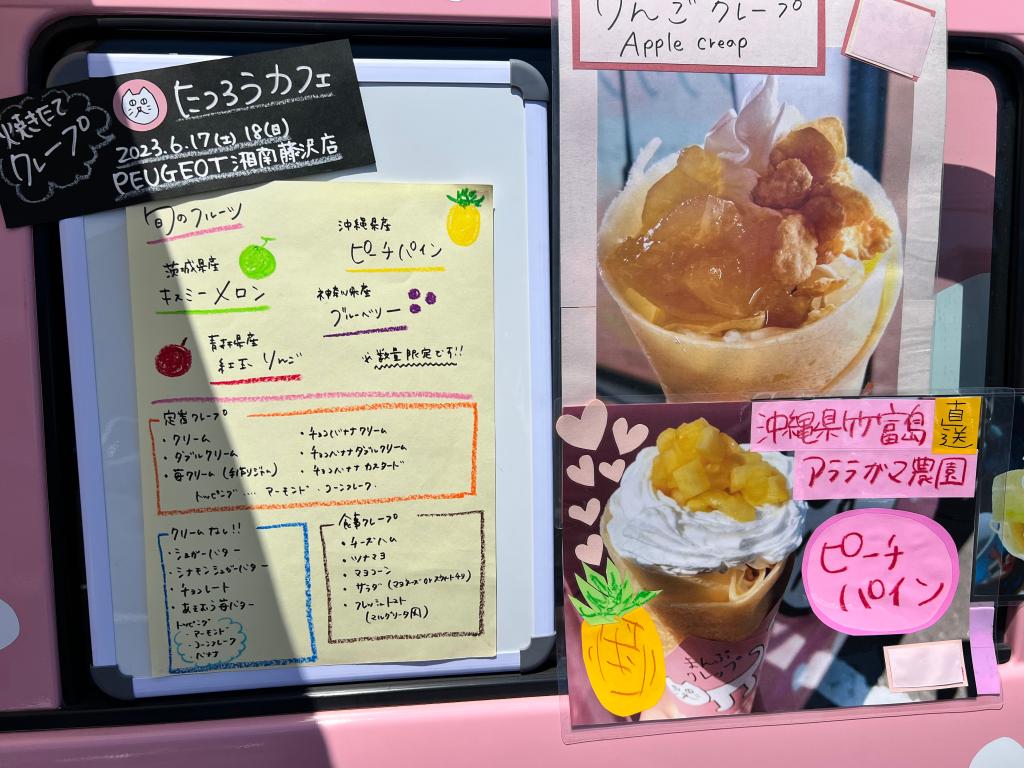 焼きたて
クレープ
たつろうカフェ
2023.6.17(土) 18(日)
PEUGEOT湘南藤沢店
旬のフルーツ
沖縄県産
ピーチパイン
茨城県産
キスミーメロン
神奈川県産
ブルーベリー
青森県産
紅玉 りんご
※数量限定です!!
定番クレープ
・クリーム
・ダブルクリーム
・苺クリーム (手作りジャム)
・チョコバナナクリーム
・チョコバナナダブルクリーム
・チョコバナナカスタード
トッピング.... アーモンド・コーンフレーク
クリームなし!!
・シュガーバター
・シナモンシュガーバター
・チョコレート
・あまおう苺バター
トッピング
・アーモンド
・コーンフレーク
・バナナ
食事クレープ
・チーズハム
・ツナマヨ
・マヨコーン
・サラダ (マヨネーズ or スイートチリ)
・フレッシュトマト
(マルゲリータ風)
りんごクレープ
Apple creap
沖縄県竹富島
直送
アララガマ農園
ピーチ
パイン
まんぷ
クレープ